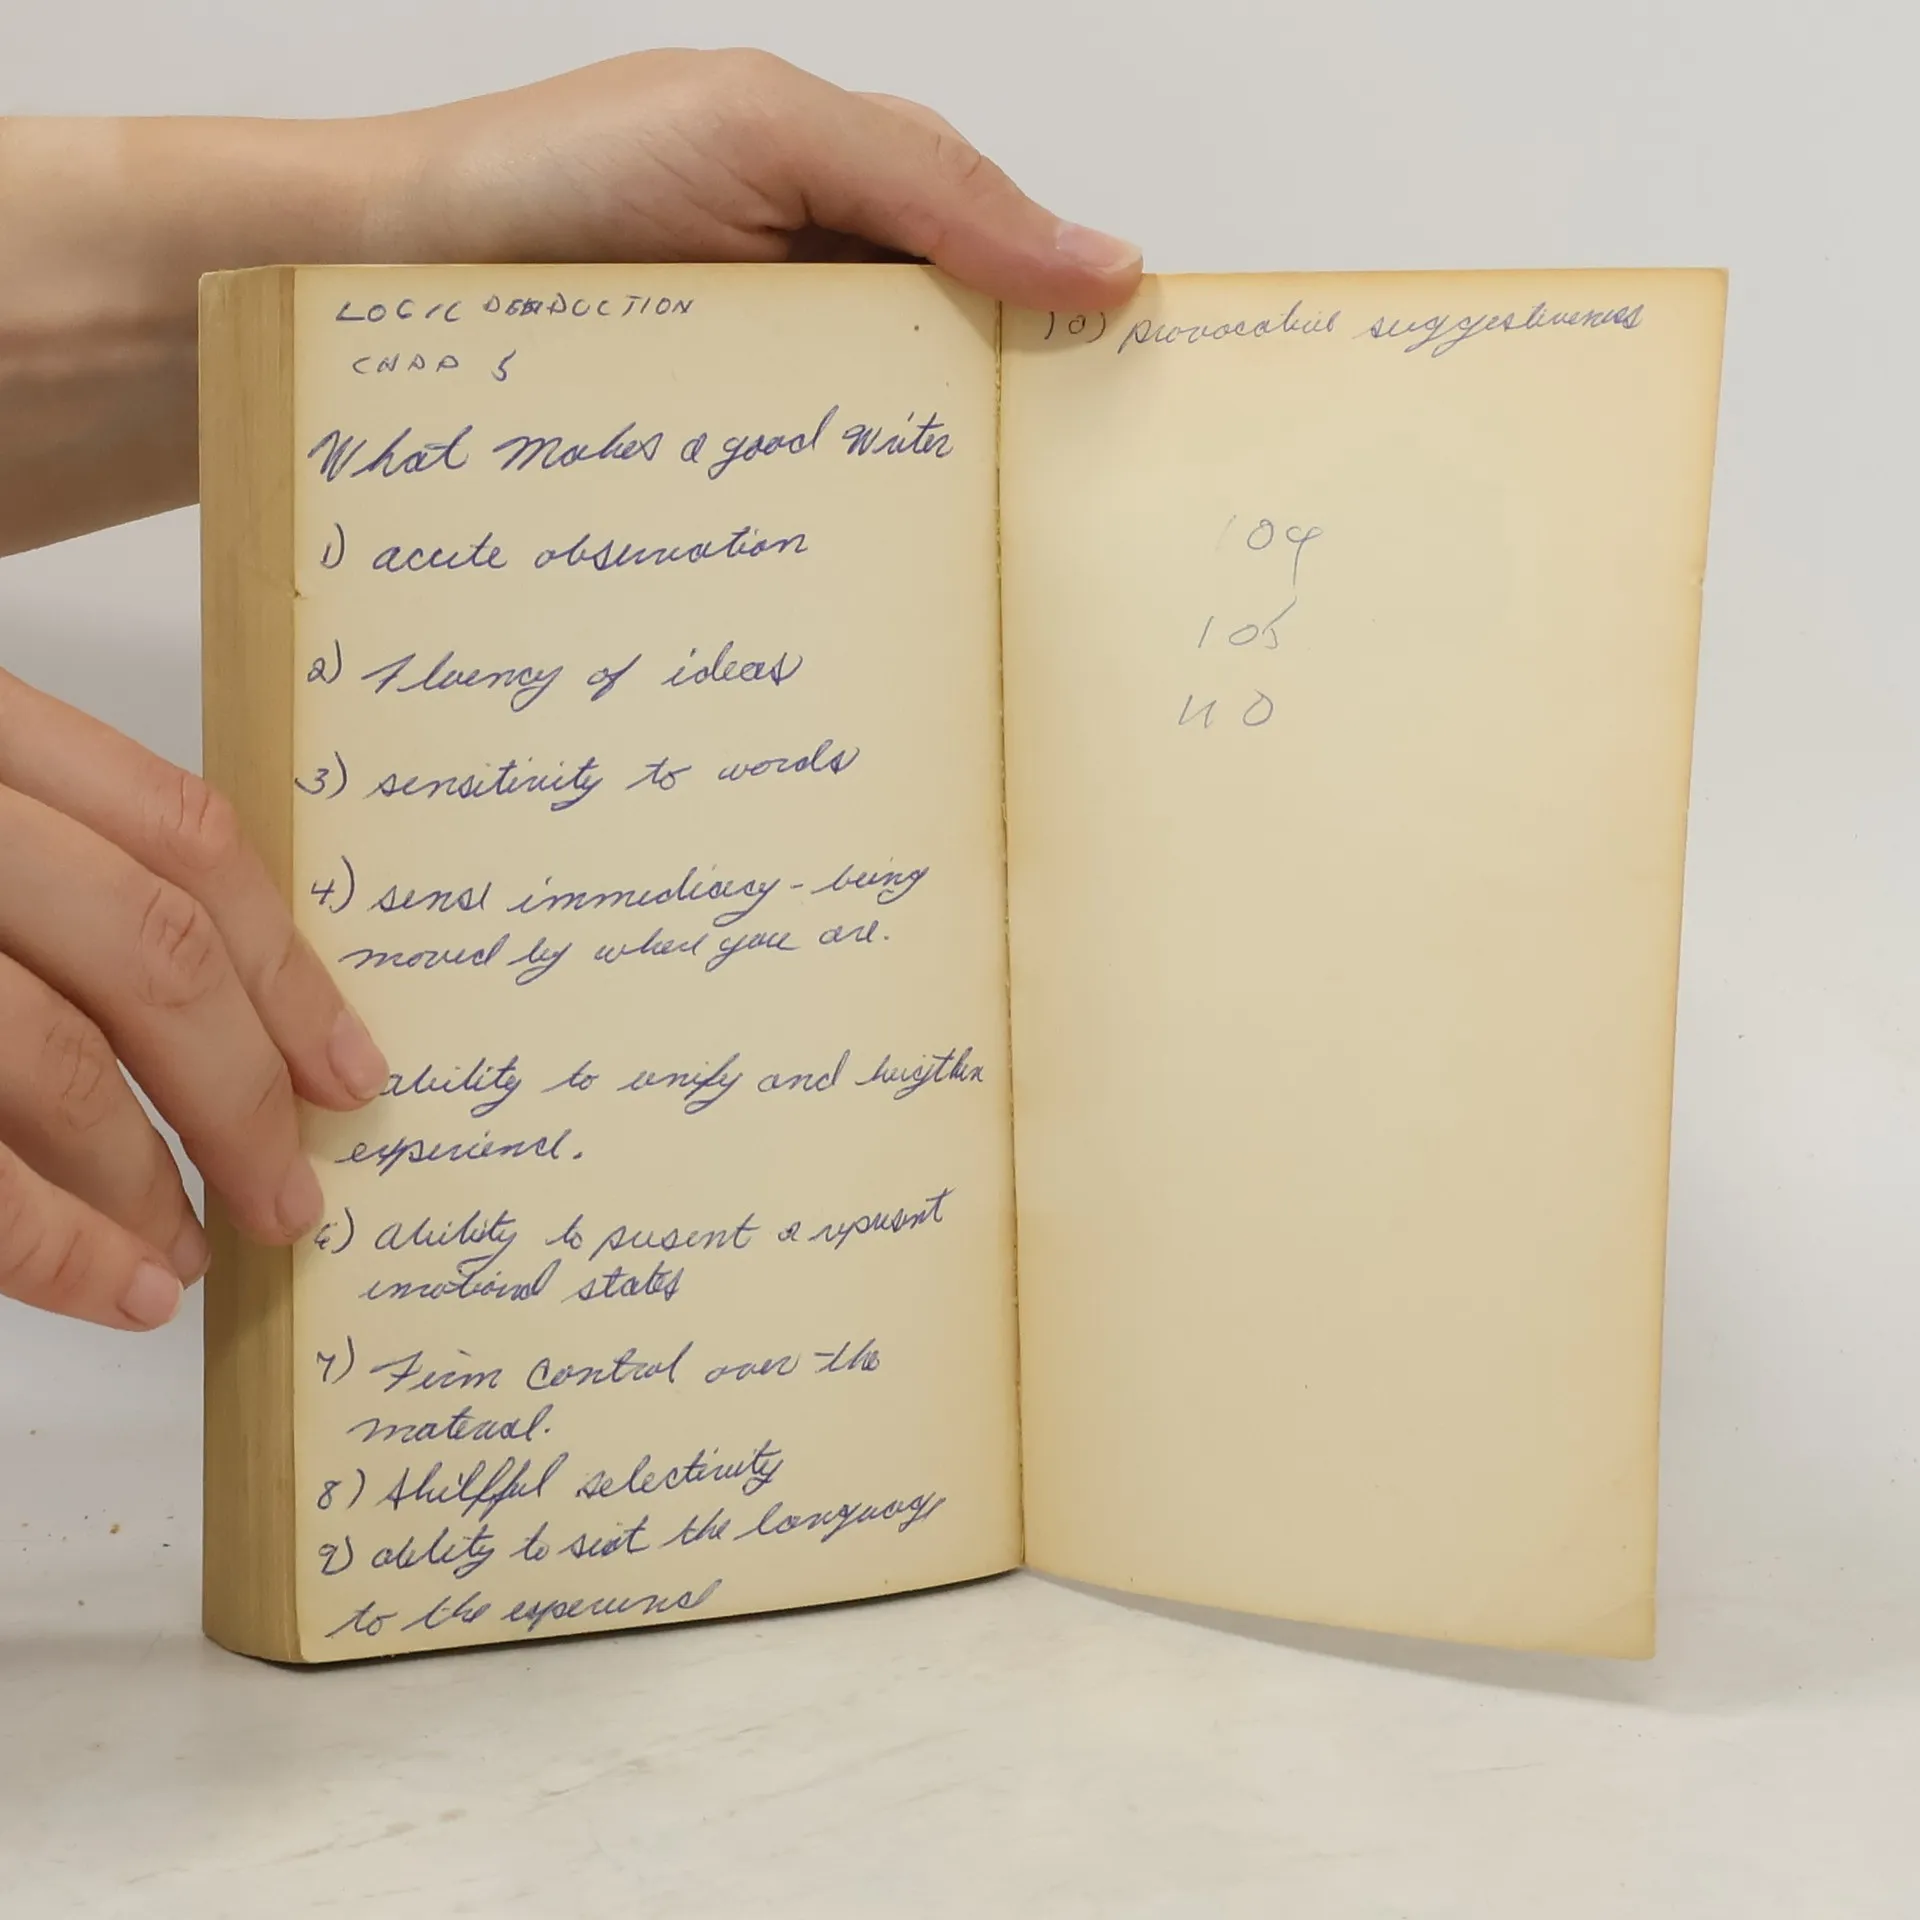 LOGIC DEDUCTION
CHAP 5
What Makes a good Writer
1) acute observation
2) Fluency of ideas
3) sensitivity to words
4) sense immediacy - being
moved by where you are.
ability to unify and heigthen
experience.
6) ability to present a represent
emotional states
7) Firm control over the
material.
8) skillful selectivity
9) ability to suit the language
to the experience
10) provocative suggestiveness
109
105
110